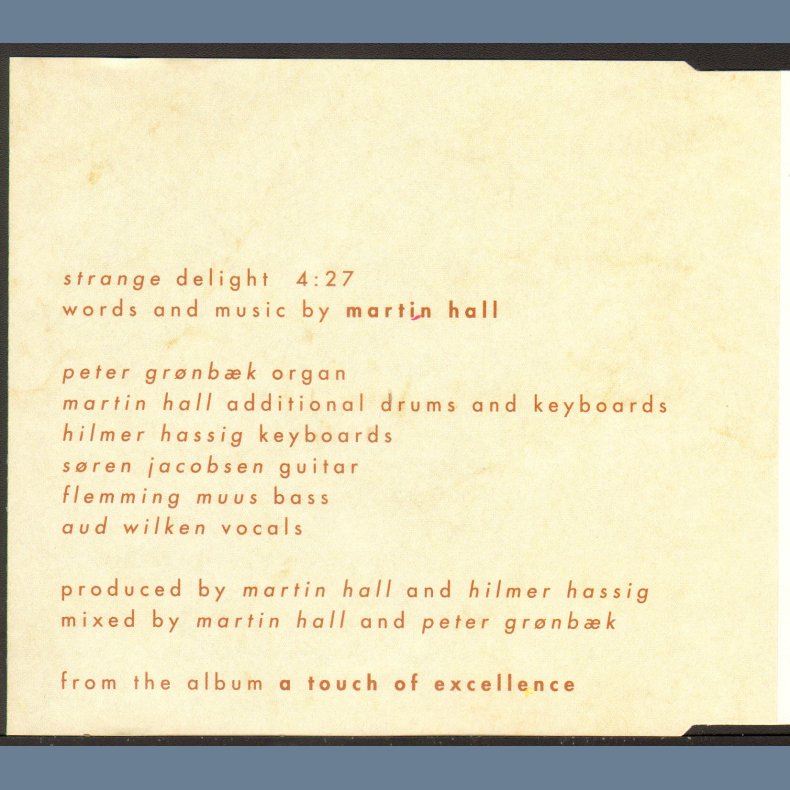 strange delight 4:27
words and music by martin hall
peter grønbæk organ
martin hall additional drums and keyboards
hilmer hassig keyboards
søren jacobsen guitar
flemming muus bass
aud wilken vocals
produced by martin hall and hilmer hassig
mixed by martin hall and peter grønbæk
from the album a touch of excellence